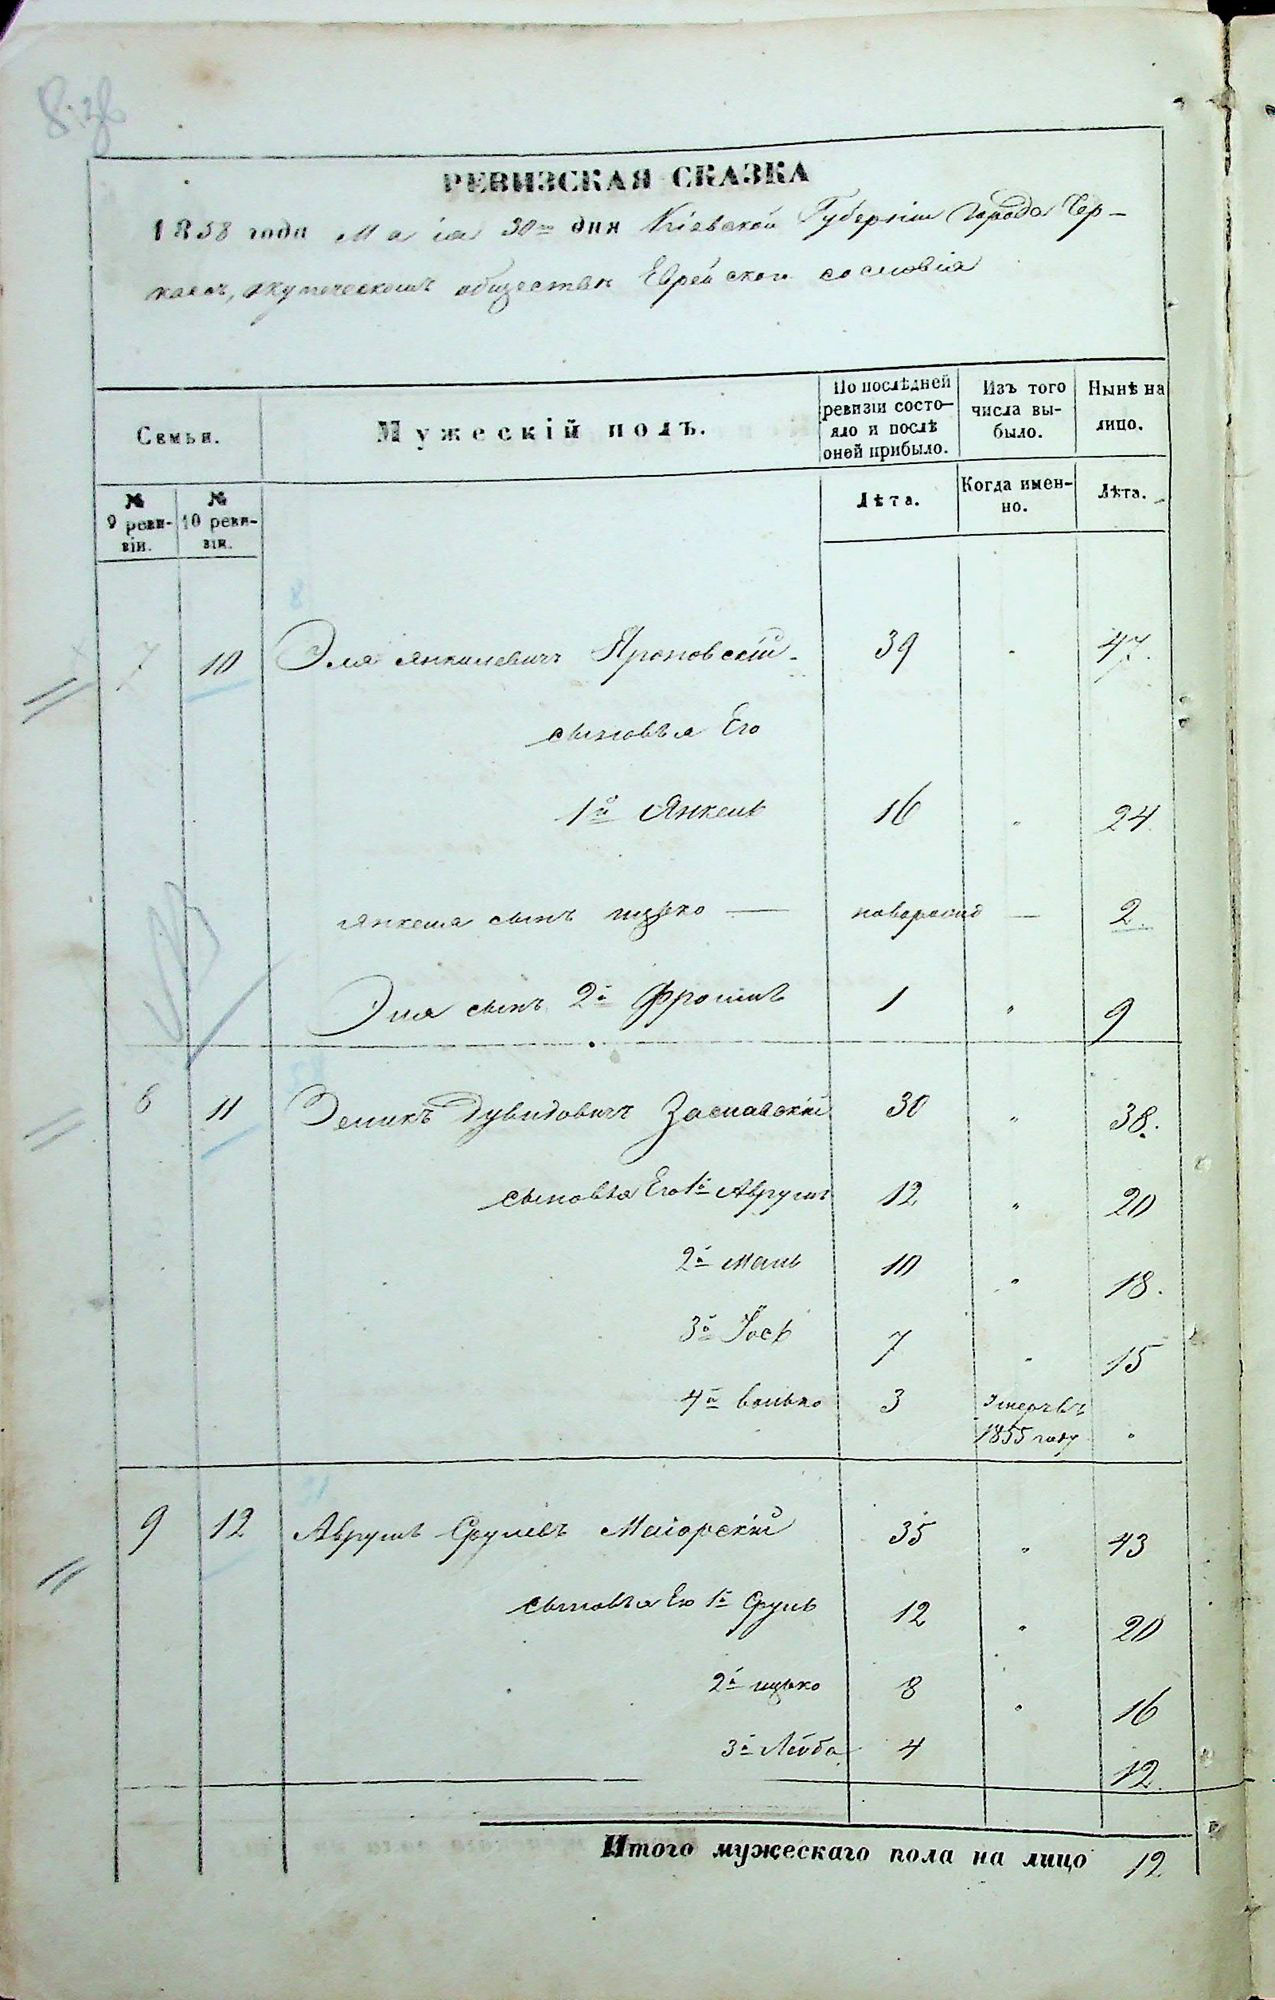 РЕВИЗСКАЯ СКАЗКА
1858 года Маія 30го дня Кіевской Губерніи города Чер-
касъ, купеческомъ обществе Еврейскаго сословія
Семьи.
Мужескій полъ.
По послѣдней ревизіи состо-яло и послѣ оной прибыло.
Изъ того числа вы-было.
Нынѣ на лицо.
№ 9 реви-зіи.
№ 10 реви-зіи.
Лѣта.
Когда имен-но.
Лѣта.
7 10 Эля Янкилевичъ Яроновскій 39 " 47.
сыновья Его
1й Янкель 16 " 24
Янкеля сынъ ицько — новорожд — 2
Эля сынъ 2й Фроимъ 1 " 9
11 Зеликъ Дувидовичъ Заславскій 30 " 38.
сыновья Его 1й Аврумъ 12 " 20
2й 10 " 18.
3й Іось 7 " 15
4й волько 3 Умеръ въ
1855 году "
9 12 Аврумъ Срулевъ Маіорскій 35 " 43
сыновья Его 1й Сруль 12 " 20
2й ицько 8 " 16
3й Лейба 4 12
Итого мужескаго пола на лицо 12